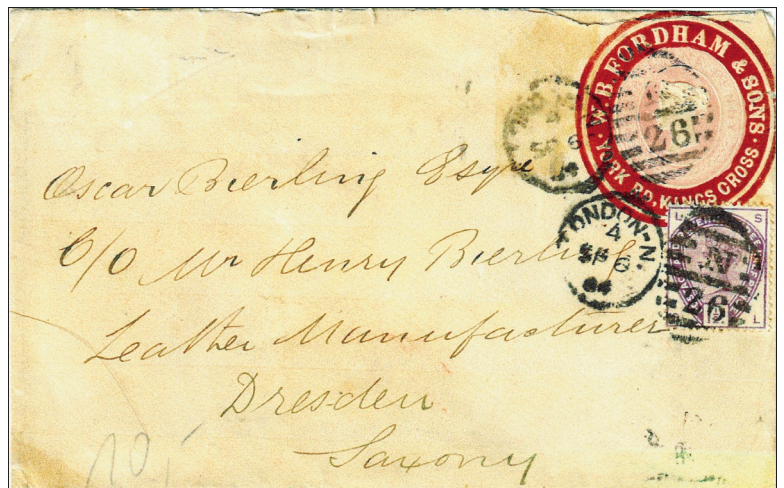 W. B. FORDHAM & SONS.
YORK RD. KINGS CROSS.
26
LONDON-N.
4
SP 6
84
N
26
S
L
Oscar Bierling Esqre
C/O Mr Henry Bierling
Leather Manufacturer
Dresden
Saxony
10,-